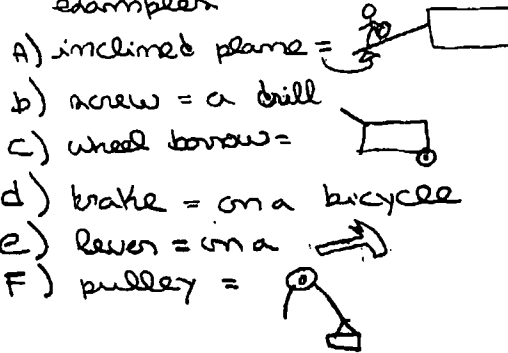 examples
A) inclined plane =
b) screw = a drill
c) wheel borrow =
d) brake = on a bicycle
e) lever = on a
F) pulley =